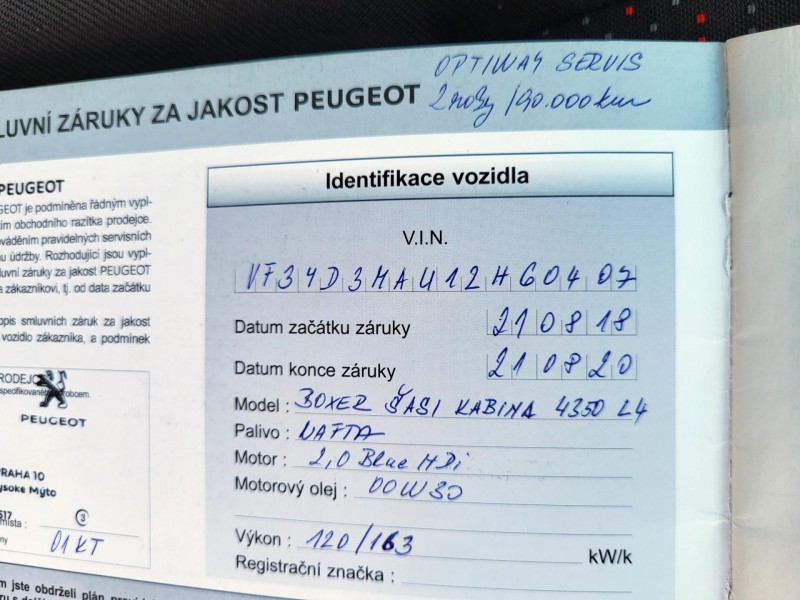 OPTIWAY SERVIS
2 roky /90.000 km
LUVNÍ ZÁRUKY ZA JAKOST PEUGEOT
PEUGEOT
GEOT je podmíněna řádným vypl-
ím obchodního razítka prodejce.
váděním pravidelných servisních
u údržby. Rozhodující jsou vypl-
luvní záruky za jakost PEUGEOT
a zákazníkovi, tj. od data začátku
opis smluvních záruk za jakost
vozidlo zákazníka, a podmínek
RODEJC
specifikované robcem.
PEUGEOT
PRAHA 10
ysoké Mýto
517
místa : 3
ny 01KT
Identifikace vozidla
V.I.N.
VF34D3MAU12H60407
Datum začátku záruky 210818
Datum konce záruky 210820
Model : BOXER ŠASI KABINA 4350 L4
Palivo : NAFTA
Motor : 2,0 Blue HDi
Motorový olej : 00W30
Výkon : 120/163 kW/k
Registrační značka :
m jste obdrželi plán